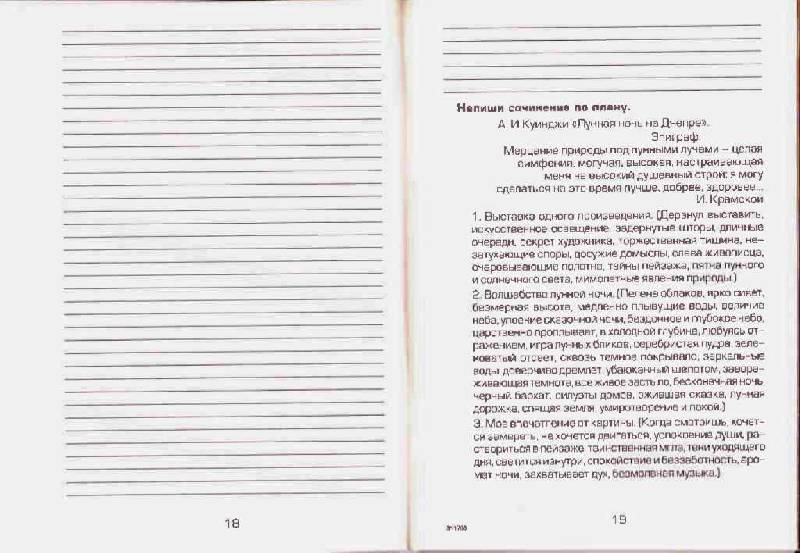 18
Напиши сочинение по плану.
А. И. Куинджи «Лунная ночь на Днепре».
Эпиграф
Мерцание природы под лунными лучами – целая
симфония, могучая, высокая, настраивающая
меня на высокий душевный строй: я могу
сделаться на это время лучше, добрее, здоровее...
И. Крамской
1. Выставка одного произведения. (Дерзнул выставить,
искусственное освещение, задернутые шторы, длинные
очереди, секрет художника, торжественная тишина, не-
затухающие споры, досужие домыслы, слава живописца,
очаровывающие полотна, тайны пейзажа, пятна лунного
и солнечного света, мимолетные явления природы.)
2. Волшебство лунной ночи. (Пелена облаков, ярко сияет,
безмерная высота, медленно плывущие воды, величие
неба, упоение сказочной ночи, бездонное и глубокое небо,
царственно проплывает, в холодной глубине, любуясь от-
ражением, игра лунных бликов, серебристая пудра, зеле-
новатый отсвет, сквозь темное покрывало, зеркальные
воды, доверчиво дремлет, убаюканный шепотом, завора-
живающая темнота, все живое застыло, бесконечная ночь,
черный бархат, силуэты домов, ожившая сказка, лунная
дорожка, спящая земля, умиротворение и покой.)
3. Мое впечатление от картины. (Когда смотришь, хочет-
ся замереть, не хочется двигаться, успокоение души, ра-
створиться в пейзаже, таинственная мгла, тени уходящего
дня, светится изнутри, спокойствие и беззаботность, аро-
мат ночи, захватывает дух, безмолвная музыка.)
19